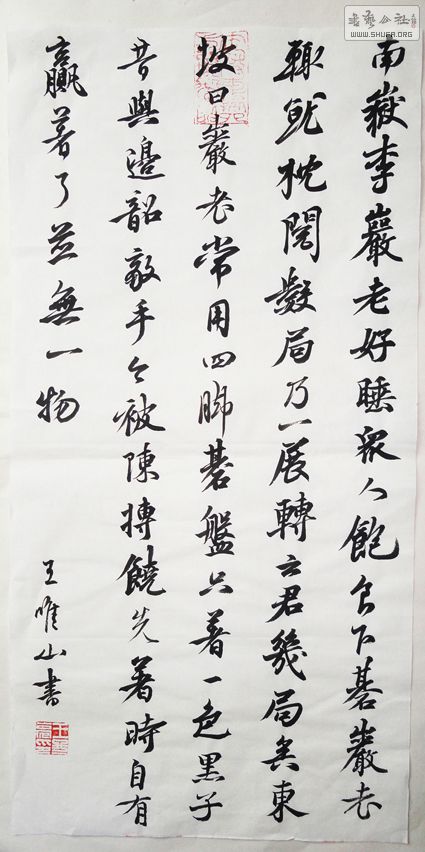 南嶽李巖老好睡眾人飽食下碁巖老
輒就枕閱數局乃一展轉云君幾局矣東
坡曰巖老常用四腳碁盤只著一色黑子
昔與邊韶敵手今被陳摶饒先著時自有
贏著了並無一物
王唯山書
書藝公社
WWW.SHUFA.ORG